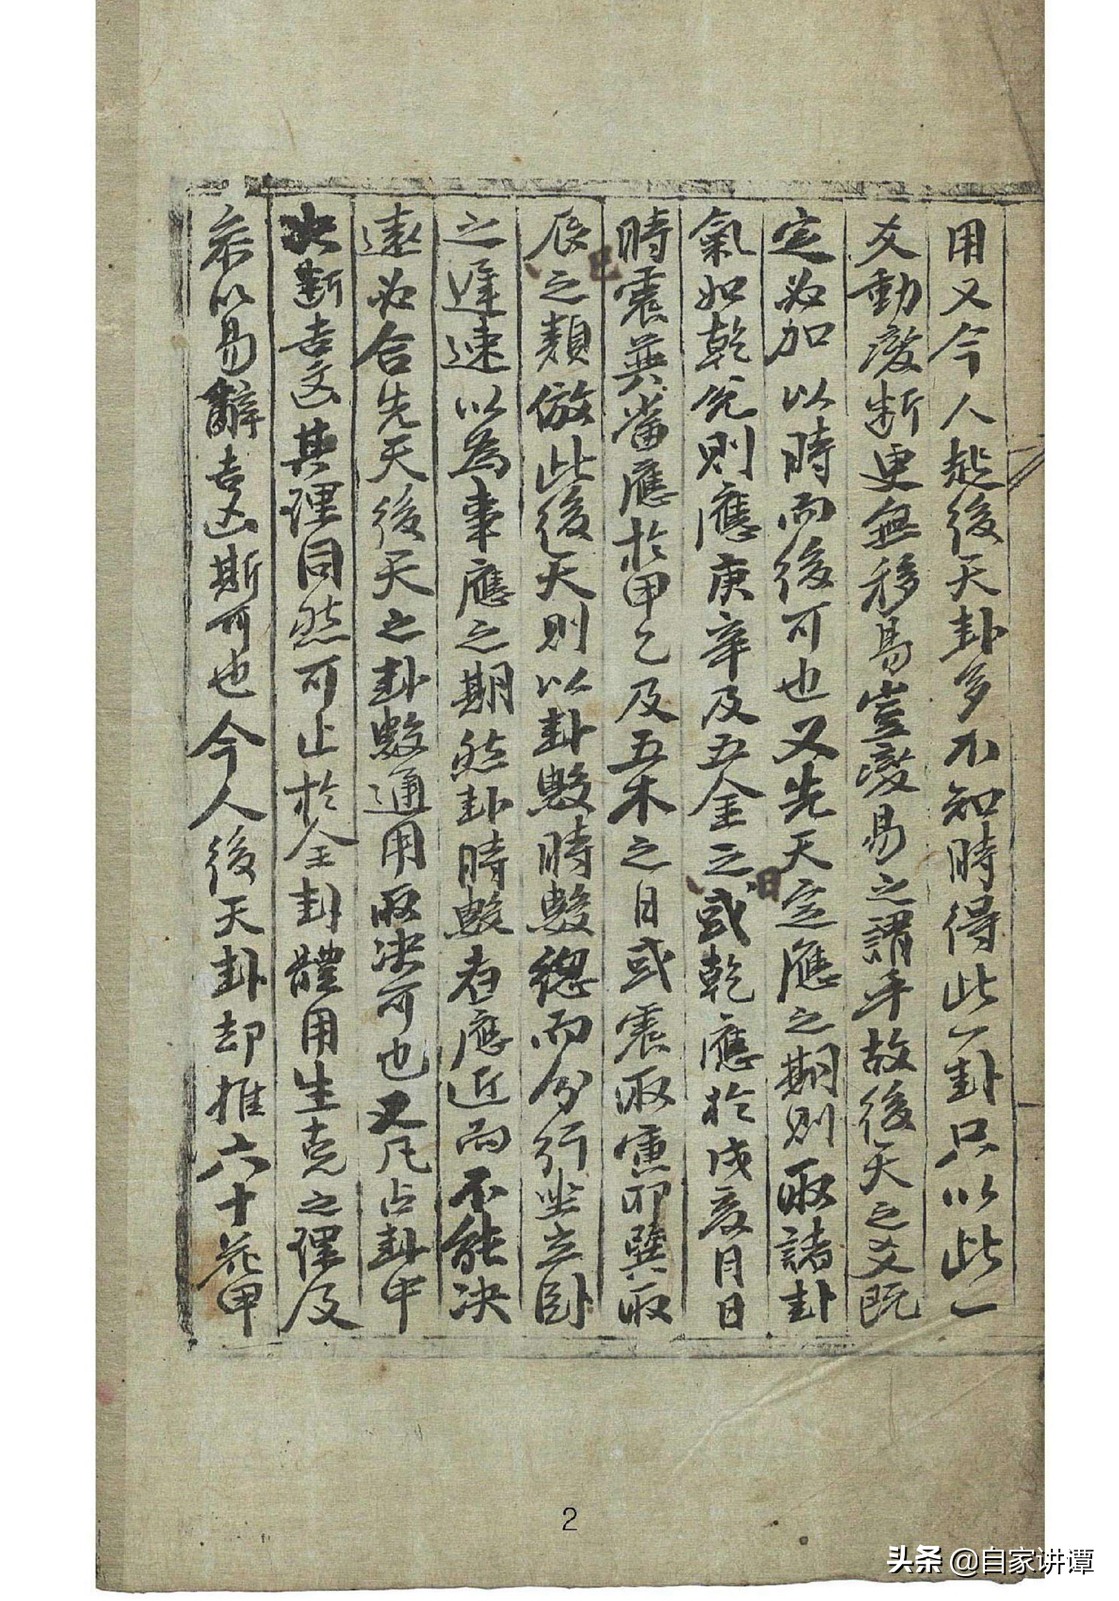 用又今人起後天卦多不知時得此一卦只以此一
爻動變断更無移易豈變易之謂乎故後天之爻既
定必加以時而後可也又先天定應之期則取諸卦
氣如乾兊則應庚辛及五金之日或乾應於戌亥月日
時震巽當應於甲乙及五木之日或震取寅卯巽取
辰巳之類倣此後天則以卦數時數總而分行坐立臥
之遲速以為事應之期然卦時數者應近而不能决
遠必合先天後天之卦數通用取决可也又凡占卦中
决断吉凶其理同然可止於全卦體用生克之理及
叅以易辭吉凶斯可也今人後天卦却推六十花甲
2
头条 @自家讲谭